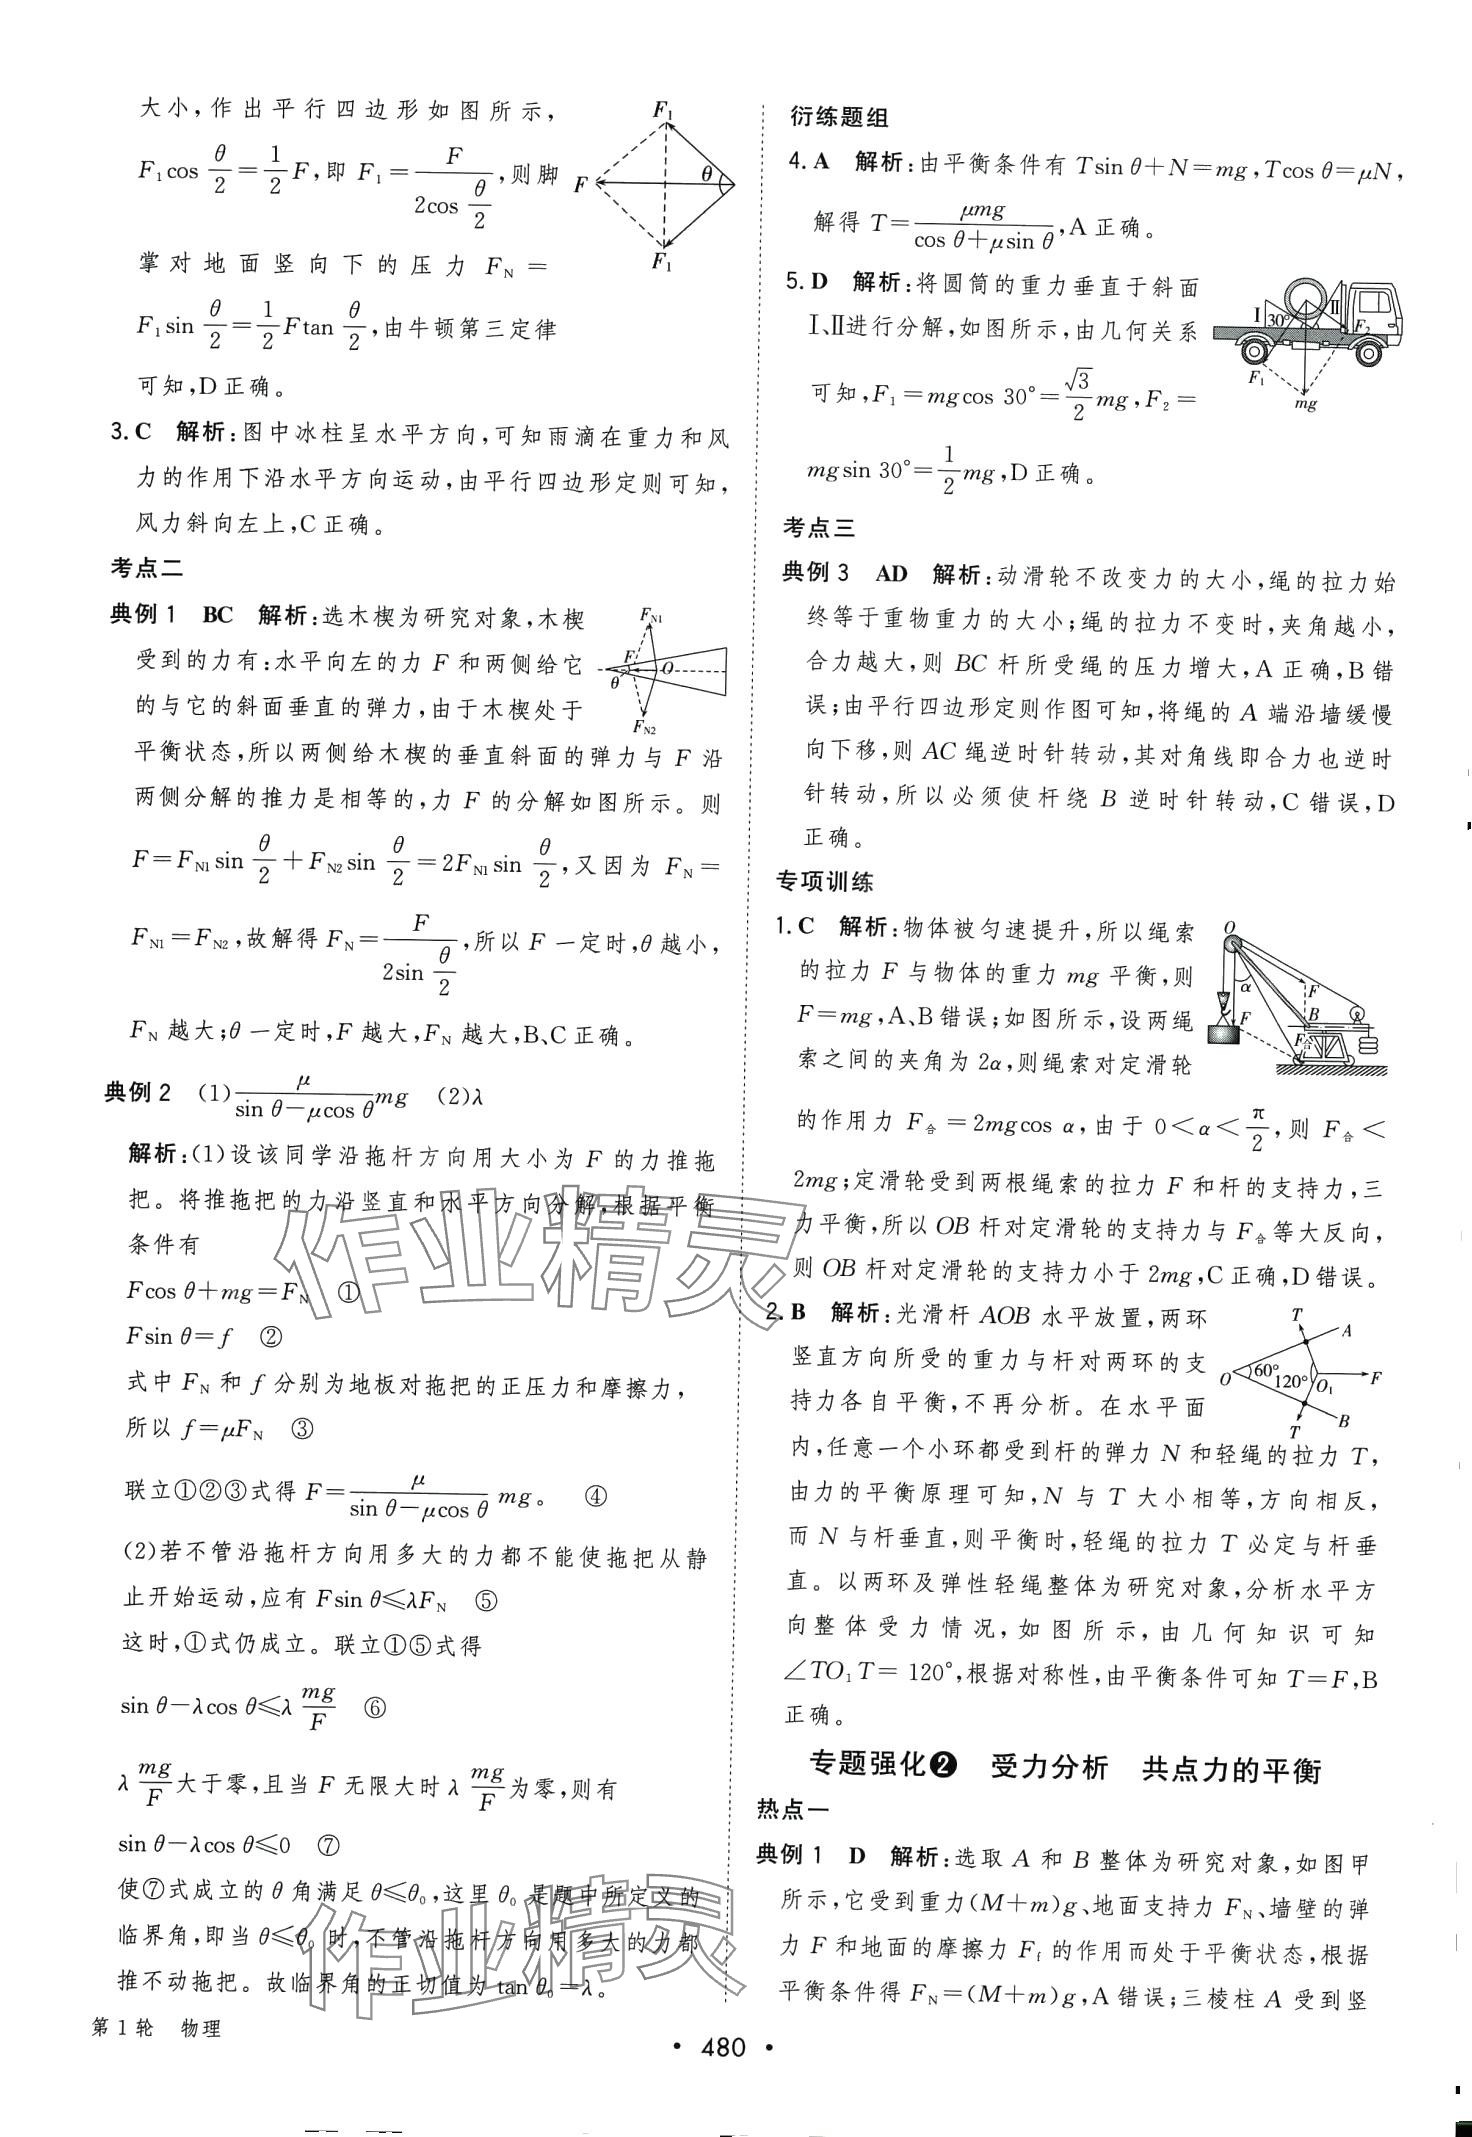 大小,作出平行四边形如图所示,
F₁cos θ/2=1/2 F,即 F₁=F/(2cos θ/2),则脚
掌对地面竖向下的压力 F_N=
F₁sin θ/2=1/2 Ftan θ/2,由牛顿第三定律
可知,D正确。
F₁
F
θ
F₁
3.C 解析:图中冰柱呈水平方向,可知雨滴在重力和风
力的作用下沿水平方向运动,由平行四边形定则可知,
风力斜向左上,C正确。
考点二
典例1 BC 解析:选木楔为研究对象,木楔
受到的力有:水平向左的力 F 和两侧给它
的与它的斜面垂直的弹力,由于木楔处于
平衡状态,所以两侧给木楔的垂直斜面的弹力与 F 沿
两侧分解的推力是相等的,力 F 的分解如图所示。则
F_N1
F
O
θ
F_N2
F=F_N1 sin θ/2+F_N2 sin θ/2=2F_N1 sin θ/2,又因为 F_N=
F_N1=F_N2,故解得 F_N=F/(2sin θ/2),所以 F 一定时,θ越小,
F_N 越大;θ一定时,F 越大,F_N 越大,B、C正确。
典例2 (1)μ/(sin θ-μcos θ) mg (2)λ
解析:(1)设该同学沿拖杆方向用大小为 F 的力推拖
把。将推拖把的力沿竖直和水平方向分解,根据平衡
条件有
Fcos θ+mg=F_N ①
Fsin θ=f ②
式中 F_N 和 f 分别为地板对拖把的正压力和摩擦力,
所以 f=μF_N ③
联立①②③式得 F=μ/(sin θ-μcos θ) mg。 ④
(2)若不管沿拖杆方向用多大的力都不能使拖把从静
止开始运动,应有 Fsin θ≤λF_N ⑤
这时,①式仍成立。联立①⑤式得
sin θ-λcos θ≤λ mg/F ⑥
λ mg/F 大于零,且当 F 无限大时λ mg/F 为零,则有
sin θ-λcos θ≤0 ⑦
使⑦式成立的θ角满足θ≤θ₀,这里θ₀是题中所定义的
临界角,即当θ≤θ₀时,不管沿拖杆方向用多大的力都
推不动拖把。故临界角的正切值为 tan θ₀=λ。
衍练题组
4.A 解析:由平衡条件有 Tsin θ+N=mg,Tcos θ=μN,
解得 T=μmg/(cos θ+μsin θ),A正确。
5.D 解析:将圆筒的重力垂直于斜面
Ⅰ、Ⅱ进行分解,如图所示,由几何关系
可知,F₁=mgcos 30°=√3/2 mg,F₂=
mgsin 30°=1/2 mg,D正确。
Ⅰ
30°
Ⅱ
F₂
F₁
mg
考点三
典例3 AD 解析:动滑轮不改变力的大小,绳的拉力始
终等于重物重力的大小;绳的拉力不变时,夹角越小,
合力越大,则 BC 杆所受绳的压力增大,A正确,B错
误;由平行四边形定则作图可知,将绳的 A 端沿墙缓慢
向下移,则 AC 绳逆时针转动,其对角线即合力也逆时
针转动,所以必须使杆绕 B 逆时针转动,C错误,D
正确。
专项训练
1.C 解析:物体被匀速提升,所以绳索
的拉力 F 与物体的重力 mg 平衡,则
F=mg,A、B错误;如图所示,设两绳
索之间的夹角为 2α,则绳索对定滑轮
O
α
F
B
F
F合
的作用力 F合=2mgcos α,由于 0<α<π/2,则 F合<
2mg;定滑轮受到两根绳索的拉力 F 和杆的支持力,三
力平衡,所以 OB 杆对定滑轮的支持力与 F合等大反向,
则 OB 杆对定滑轮的支持力小于 2mg,C正确,D错误。
2.B 解析:光滑杆 AOB 水平放置,两环
竖直方向所受的重力与杆对两环的支
持力各自平衡,不再分析。在水平面
内,任意一个小环都受到杆的弹力 N 和轻绳的拉力 T,
T
A
O
60°
120°
O₁
F
T
B
由力的平衡原理可知,N 与 T 大小相等,方向相反,
而 N 与杆垂直,则平衡时,轻绳的拉力 T 必定与杆垂
直。以两环及弹性轻绳整体为研究对象,分析水平方
向整体受力情况,如图所示,由几何知识可知
∠TO₁T=120°,根据对称性,由平衡条件可知 T=F,B
正确。
专题强化❷ 受力分析 共点力的平衡
热点一
典例1 D 解析:选取 A 和 B 整体为研究对象,如图甲
所示,它受到重力(M+m)g、地面支持力 F_N、墙壁的弹
力 F 和地面的摩擦力 F_f 的作用而处于平衡状态,根据
平衡条件得 F_N=(M+m)g,A错误;三棱柱 A 受到竖
第1轮 物理
• 480 •
作业精灵
作业精灵